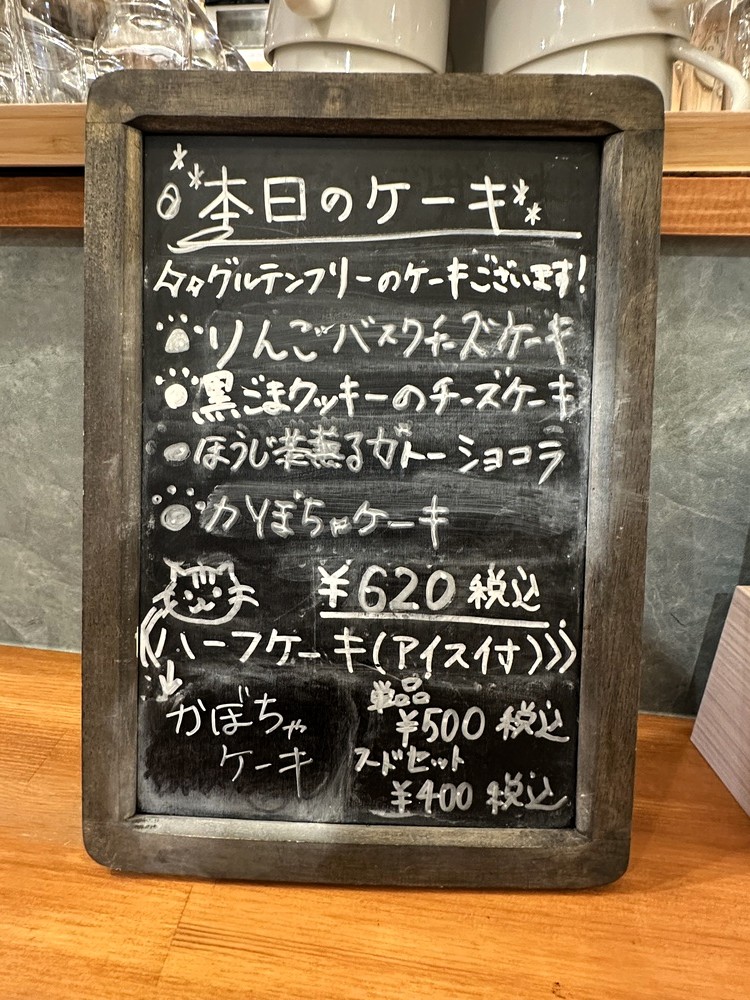 本日のケーキ
グルテンフリーのケーキございます!
りんごバスクチーズケーキ
黒ごまクッキーのチーズケーキ
ほうじ茶薫るガトーショコラ
かぼちゃケーキ
¥620 税込
ハーフケーキ(アイス付)))
かぼちゃ
ケーキ
単品
¥500 税込
フードセット
¥400 税込